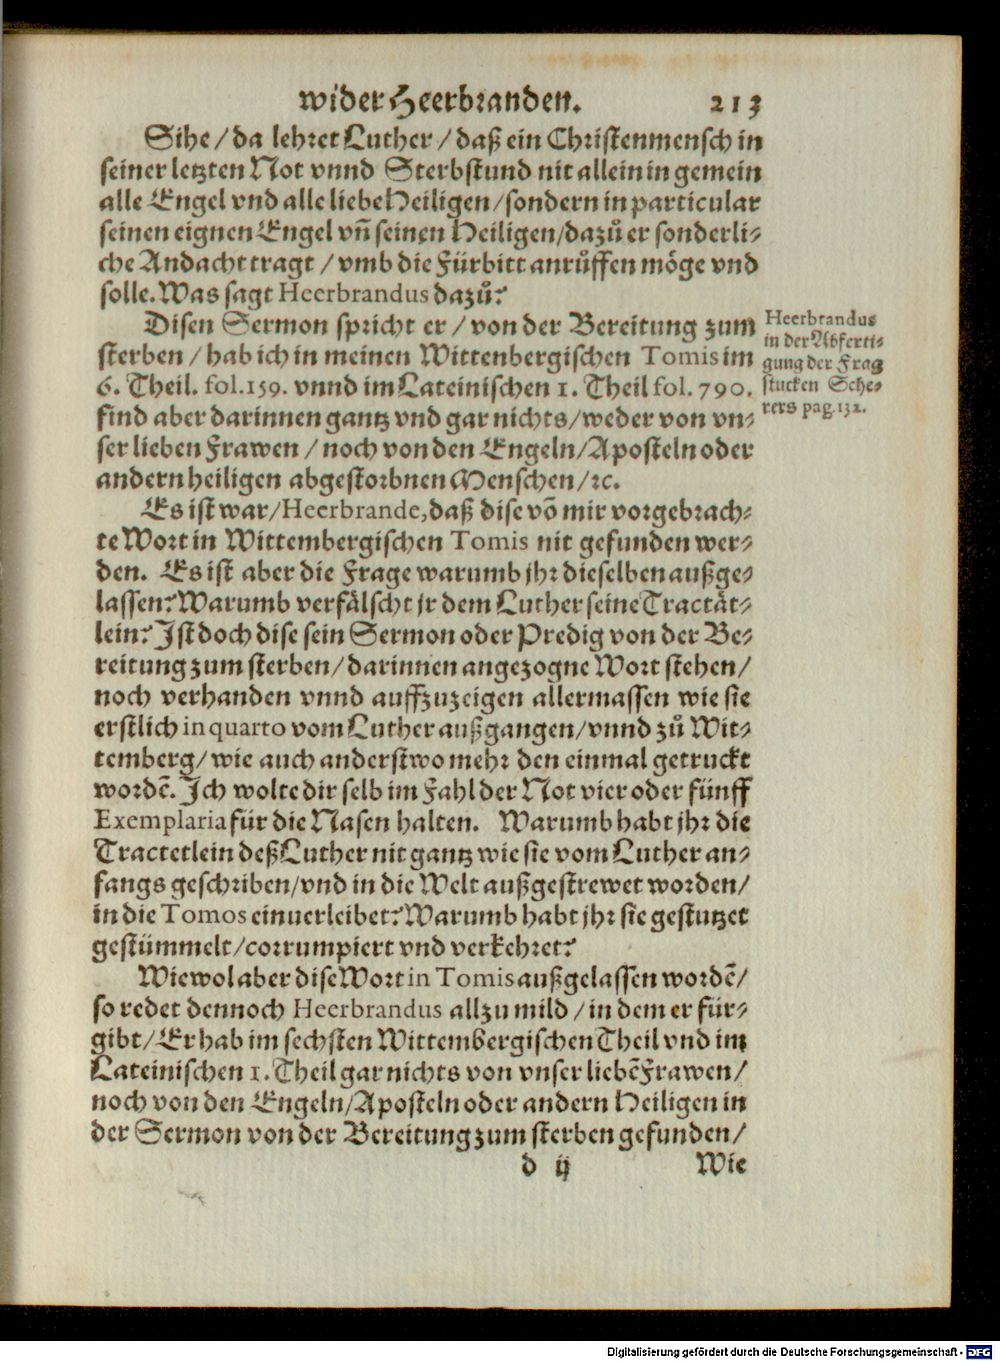 wider Heerbranden. 213
Sihe / da lehret Luther / daß ein Christenmensch in
seiner letzten Not vnnd Sterbstund nit allein in gemein
alle Engel vnd alle liebe Heiligen / sondern in particular
seinen eignen Engel vñ seinen Heiligen / dazů er sonderli⸗
che Andacht tragt / vmb die Fürbitt anrůffen möge vnd
solle. Was sagt Heerbrandus dazů?
Disen Sermon spricht er / von der Bereitung zum
sterben / hab ich in meinen Wittenbergischen Tomis im
6. Theil. fol. 159. vnnd im Lateinischen 1. Theil fol. 790.
find aber darinnen gantz vnd gar nichts / weder von vn⸗
ser lieben Frawen / noch von den Engeln / Aposteln oder
andern heiligen abgestorbnen Menschen / ꝛc.
Heerbrandus
in der Abferti⸗
gung der Frag
stucken Sche⸗
rers pag. 132.
Es ist war / Heerbrande, daß dise võ mir vorgebrach⸗
te Wort in Wittembergischen Tomis nit gefunden wer⸗
den. Es ist aber die Frage warumb jhr dieselben außge⸗
lassen? Warumb verfälscht jr dem Luther seine Tractät⸗
lein? Ist doch dise sein Sermon oder Predig von der Be⸗
reitung zum sterben / darinnen angezogne Wort stehen /
noch verhanden vnnd auffzuzeigen allermassen wie sie
erstlich in quarto vom Luther außgangen / vnnd zů Wit⸗
temberg / wie auch anderstwo mehr den einmal getruckt
wordẽ. Ich wolte dir selb im Fahl der Not vier oder fünff
Exemplaria für die Nasen halten. Warumb habt jhr die
Tractetlein deß Luther nit gantz wie sie vom Luther an⸗
fangs geschriben / vnd in die Welt außgestrewet worden /
in die Tomos einuerleibet? Warumb habt jhr sie gestutzet
gestümmelt / corrumpiert vnd verkehret?
Wiewol aber dise Wort in Tomis außgelassen wordẽ /
so redet dennoch Heerbrandus allzu mild / in dem er für⸗
gibt / Er hab im sechsten Wittembergischen Theil vnd im
Lateinischen 1. Theil gar nichts von vnser liebẽ Frawen /
noch von den Engeln / Aposteln oder andern Heiligen in
der Sermon von der Bereitung zum sterben gefunden /
d ij Wie
Digitalisierung gefördert durch die Deutsche Forschungsgemeinschaft - DFG